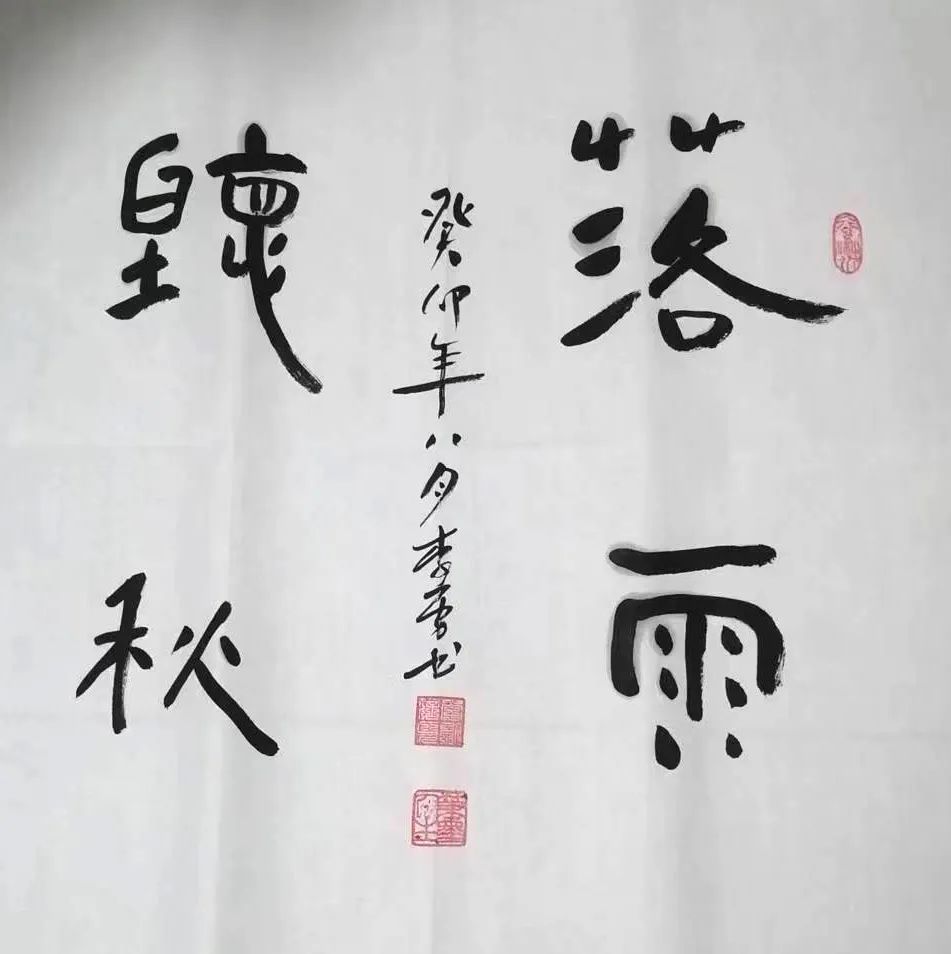 落雨
聽秋
癸卯年八月李书